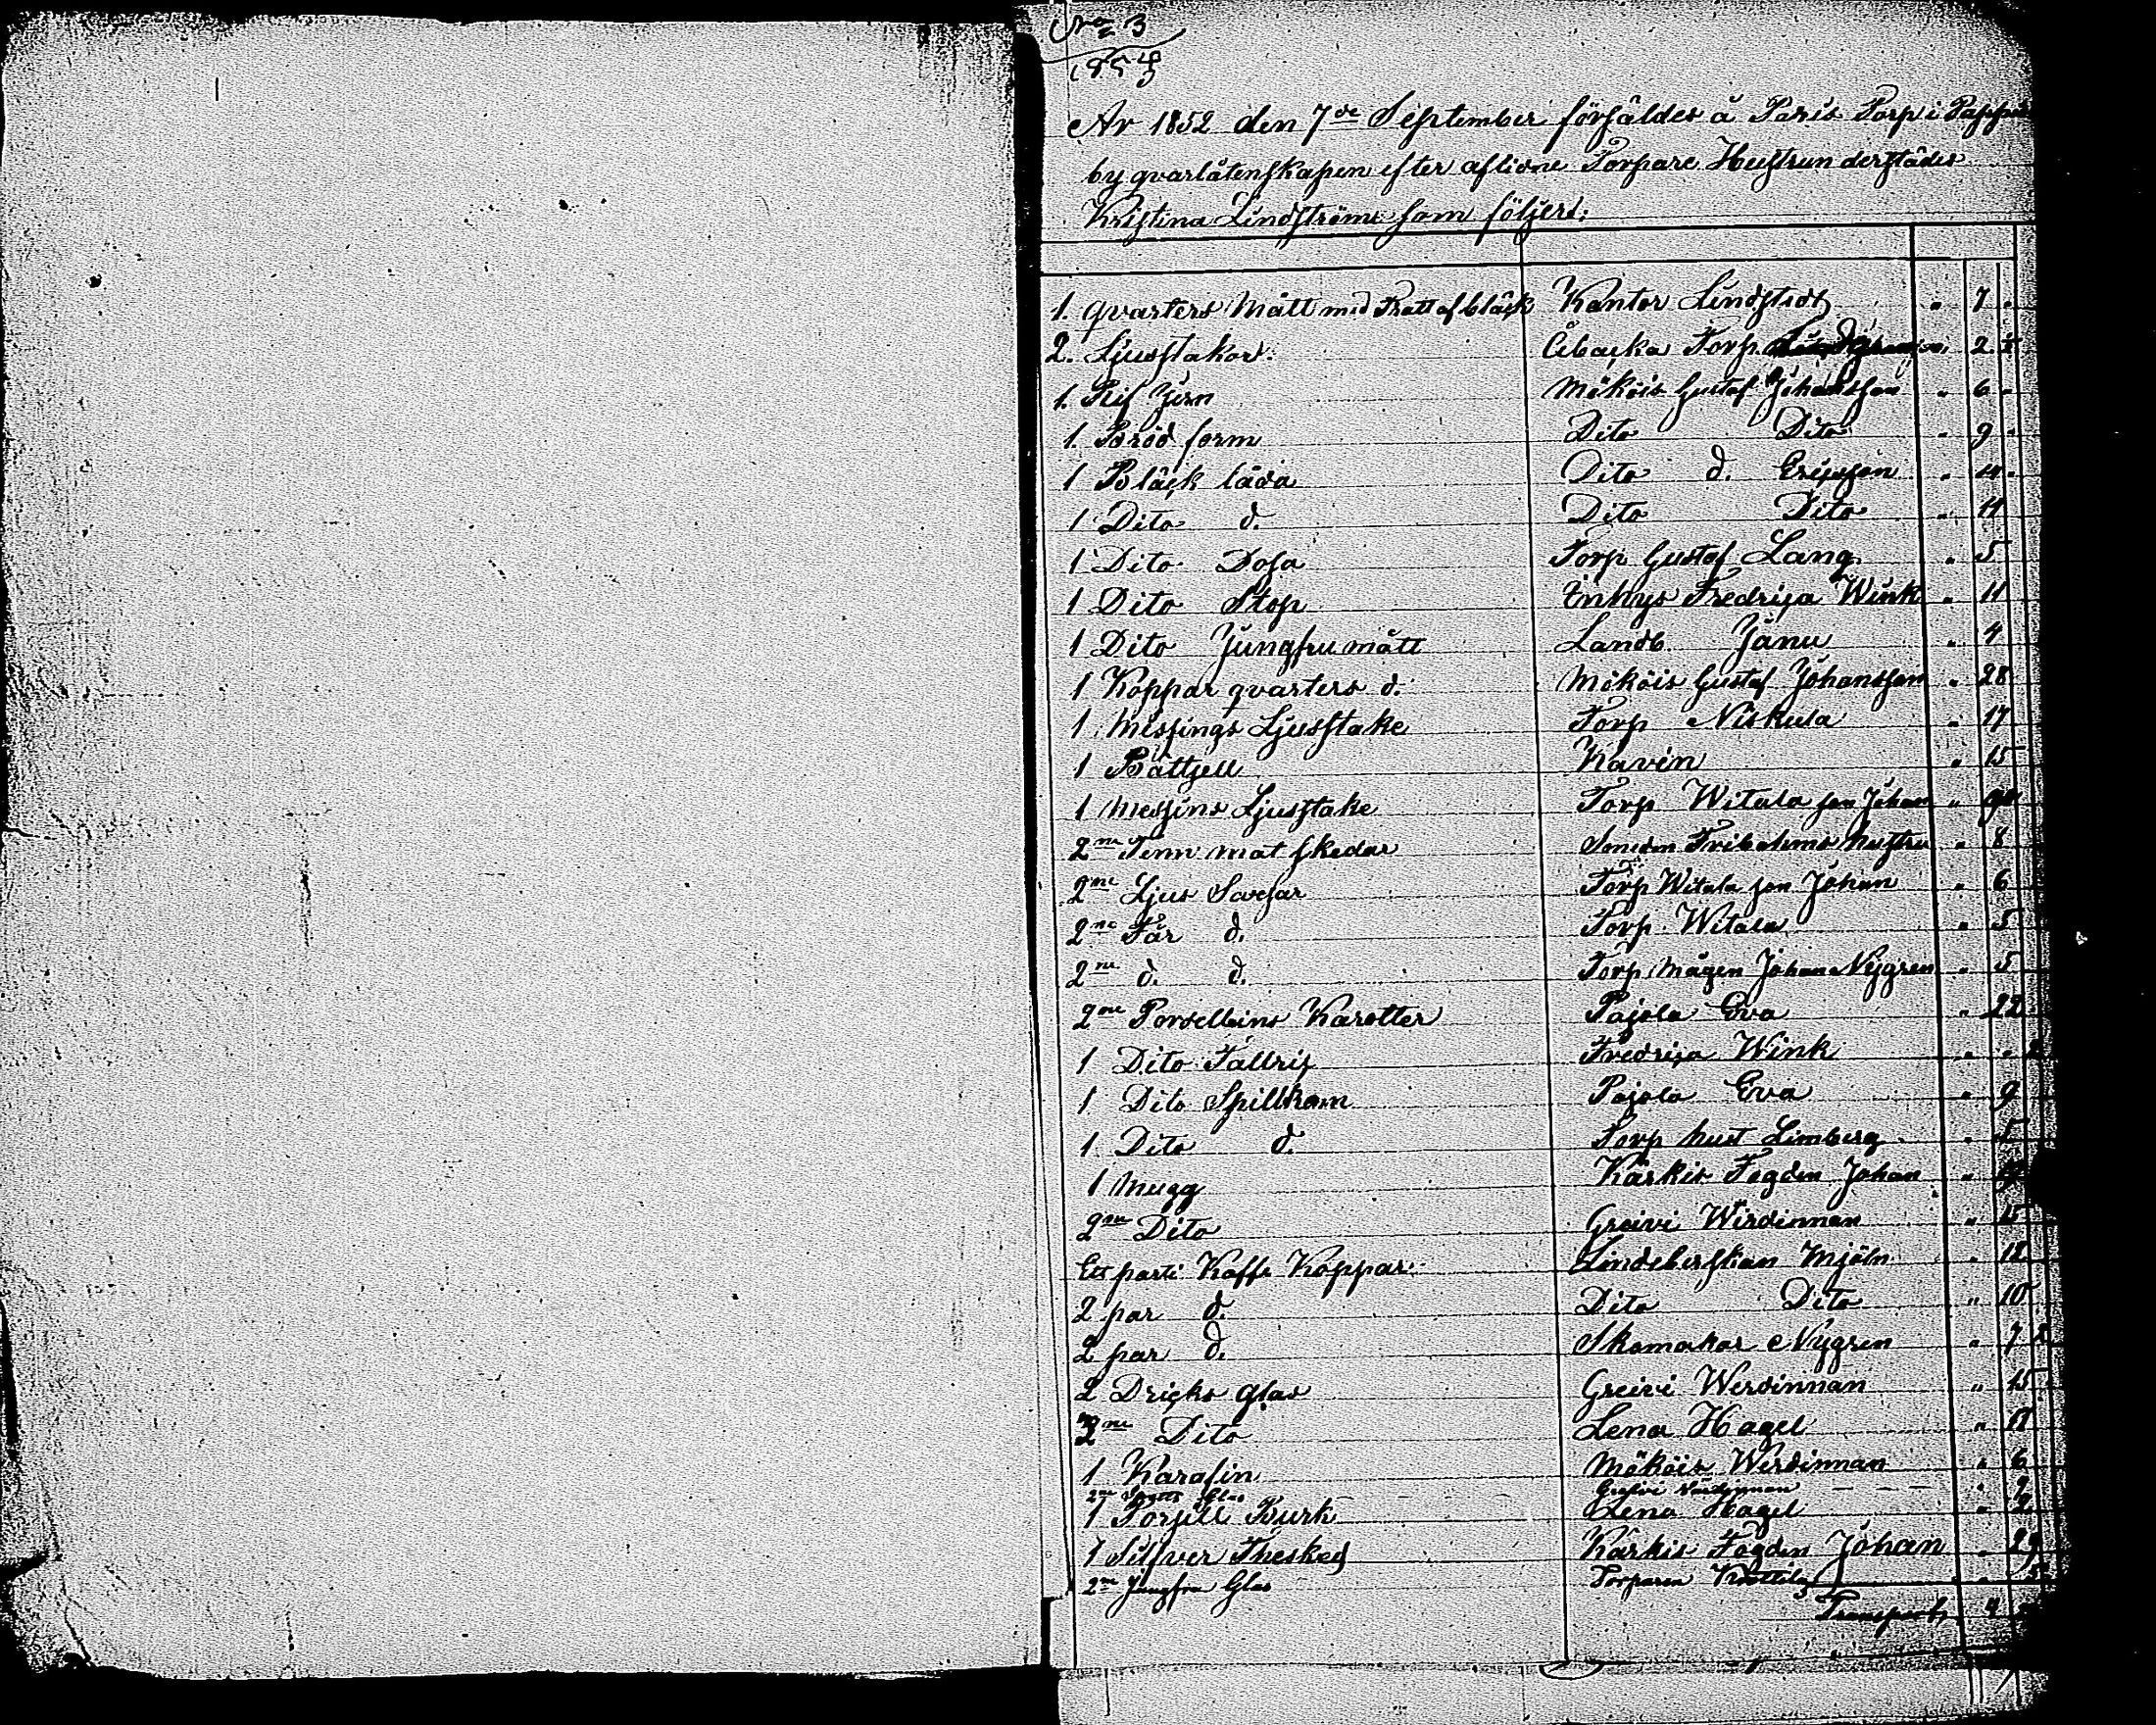 No 3
1854
År 1852 den 7de September försåldes å Paris Torp i Pappis
by qvarlåtenskapen efter aflidne Torpare Hustrun derstädes
Kristina Lindström som följer:
1. qvarters Mått med Tratt af bläck Kantor Lindstedt " 7 "
2. Ljusstakar. Torp 2
1. Rif Jern Mököis Gustaf Johansson " 6 "
1. Bröd form Dito Dito " 9 "
1 Bläck låda Dito d. Ericsson "
1 Dito d. Dito Dito " 11
1 Dito Dosa Torp Gustaf Lang " 5
1 Dito Stop Inhys Fredrica Wink " 11
1 Dito Jungfru mått Landb. Jånu " 4
1 Koppar qvarters d. Mököis Gustaf Johansson " 28
1 Messings Ljusstake Torp Niskula " 17
1 Kavén " 15
1 Messins Ljusstake Torp Witala son Johan "
2ne Tenn mat skedar hustru " 8
2ne Ljus Saxar Torp Witala son Johan " 6
2ne Får d. Torp Witala " 5
2ne d. d. Torp Mågen Johan Nygren " 5
2ne Porselleins Karotter Pajola Eva " 22
1 Dito Tallrik Fredrica Wink " " 2
1 Dito Spillkom Pajola Eva " 9
1 Dito d. Torp hust Limberg " 5
1 Mugg Kärkis Fogden Johan "
2ne Dito Greivi Wirdinnan " 15
Ett parti Kaffe Koppar Mjöln " 12
2 par d. Dito Dito " 10
2 par d. Skomakar Nygren " 7 2
2 Dricks glas Greivi Werdinnan " 15
2ne Dito Lena Hagel "
1 Karafin Mököis Werdinnan " 6
2ne Glas Greivi Werdinnan " 9
1 Burk Lena Hagel "
1 Silfver Thesked Kärkis Fogden Johan "
2ne Jungfru Glas Torparen
Transport 4